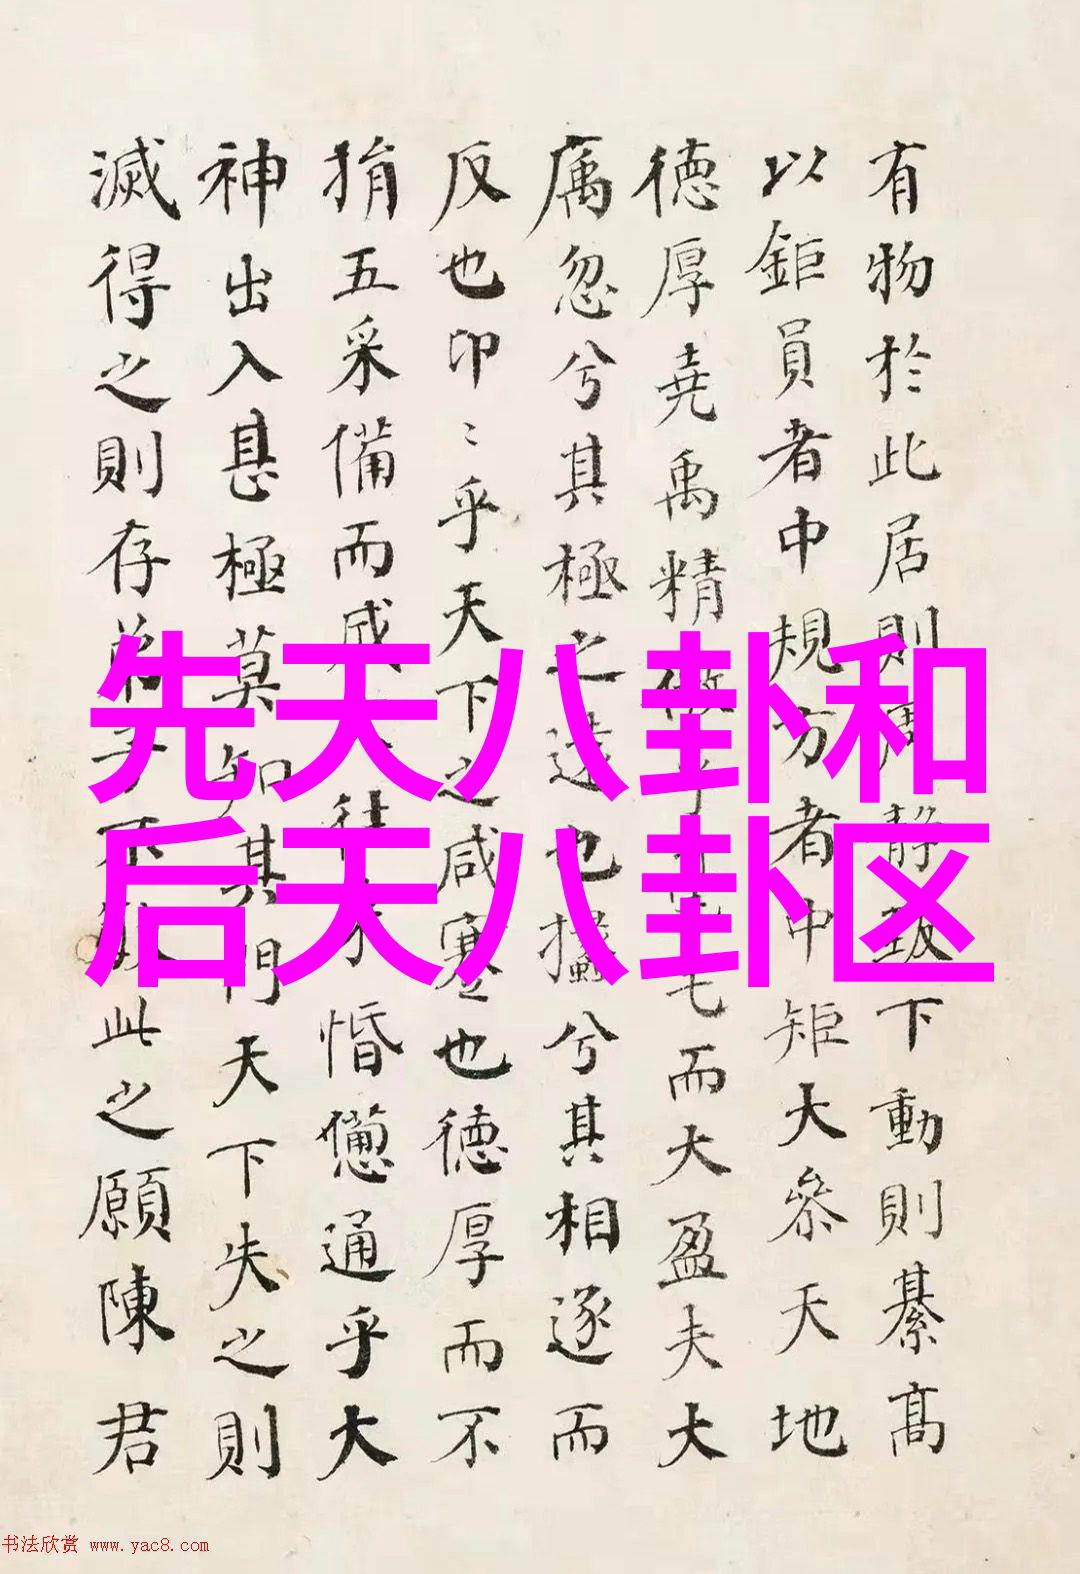 有物於此居則静致下動則綦高
以鉅員者中規方者中矩大參天地
德厚堯禹精微乎毛而大盈夫大
厲忽兮其極之遠也攭兮其相逐而
反也卬〻乎天下之咸蹇也德厚而不
捐五采備而成往惛憊通乎大
神出入甚極莫知其門天下失之則
滅得之則存子不此之願陳君
先天八卦和
后天八卦区
书法欣赏 www.yac8.com